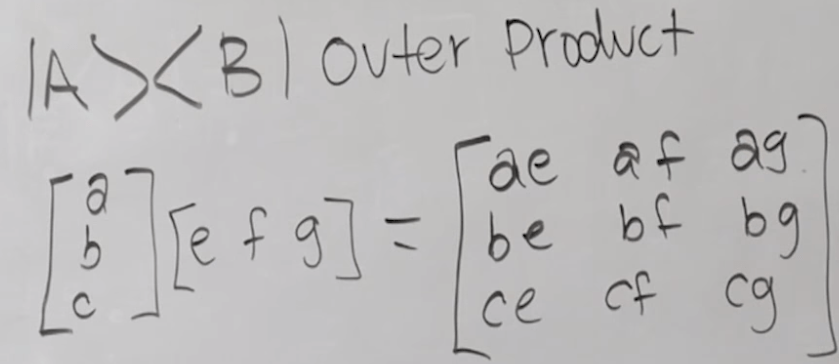 |A><B| Outer Product
[a b c] [e f g] = [ae af ag
be bf bg
ce cf cg]